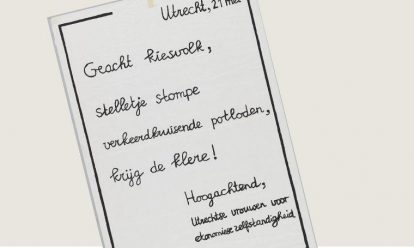 Utrecht, 21 mei
Geacht kiesvolk,
stelletje stompe
verkeerdkruisende potloden,
krijg de klere!
Hoogachtend,
Utrechtse vrouwen voor
ekonomiese zelfstandigheid